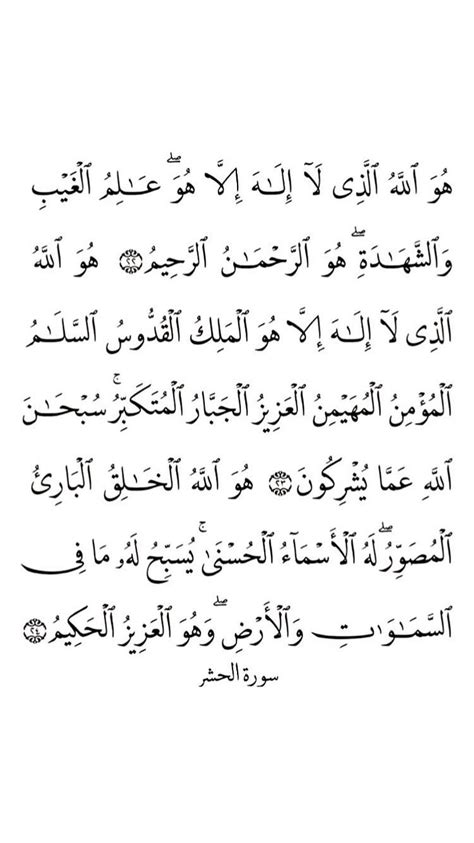 هُوَ ٱللَّهُ ٱلَّذِى لَآ إِلَـٰهَ إِلَّا هُوَ ۖ عَـٰلِمُ ٱلْغَيْبِ
وَٱلشَّهَـٰدَةِ ۖ هُوَ ٱلرَّحْمَـٰنُ ٱلرَّحِيمُ ﴿٢٢﴾ هُوَ ٱللَّهُ
ٱلَّذِى لَآ إِلَـٰهَ إِلَّا هُوَ ٱلْمَلِكُ ٱلْقُدُّوسُ ٱلسَّلَـٰمُ
ٱلْمُؤْمِنُ ٱلْمُهَيْمِنُ ٱلْعَزِيزُ ٱلْجَبَّارُ ٱلْمُتَكَبِّرُ ۚ سُبْحَـٰنَ
ٱللَّهِ عَمَّا يُشْرِكُونَ ﴿٢٣﴾ هُوَ ٱللَّهُ ٱلْخَـٰلِقُ ٱلْبَارِئُ
ٱلْمُصَوِّرُ ۖ لَهُ ٱلْأَسْمَآءُ ٱلْحُسْنَىٰ ۚ يُسَبِّحُ لَهُۥ مَا فِى
ٱلسَّمَـٰوَٰتِ وَٱلْأَرْضِ ۖ وَهُوَ ٱلْعَزِيزُ ٱلْحَكِيمُ ﴿٢٤﴾
سورة الحشر